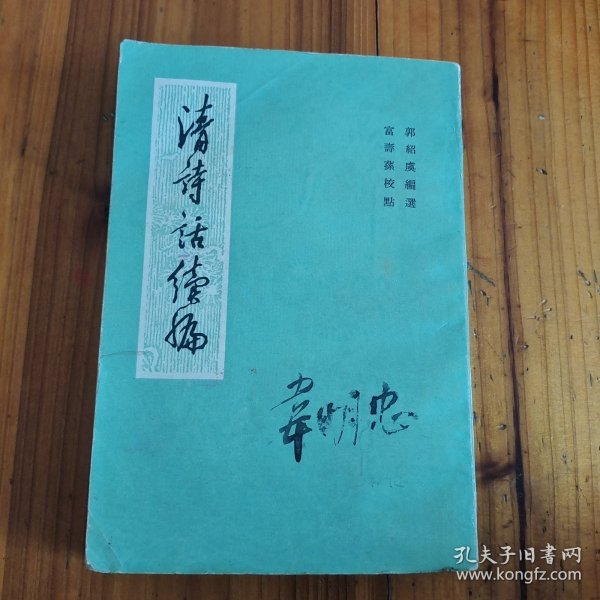 清詩話續編
郭紹虞編選
富壽蓀校點
韋明忠
孔夫子旧书网
www.kongfz.com